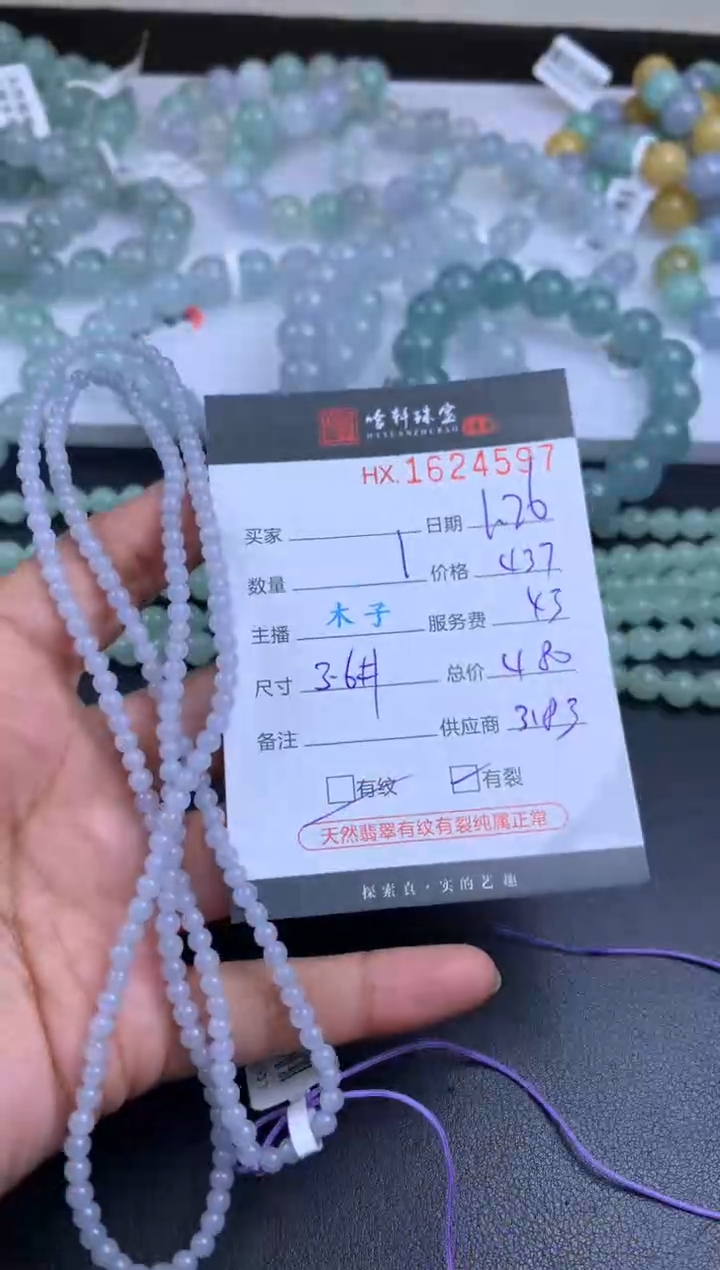 哈轩珠宝
HAXUANZHUBAO
HX.1624597
买家 日期 1.26
数量 1 价格 437
主播 木子 服务费 43
尺寸 3-6# 总价 480
备注 供应商 3183
有纹 有裂
天然翡翠有纹有裂纯属正常
探索真·实的艺趣